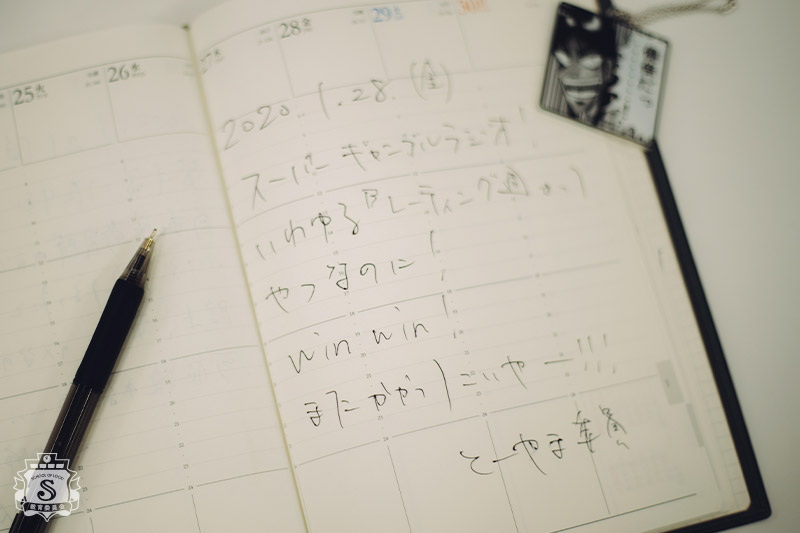 25
26 水
27
28 金
29
2020.1.28.(金)
スーパーギャンブルラジオ!
いわゆる"レーティング週"の
やつなのに!
win win!
またかかってこいやー!!!
とーやま委員
SCHOOL OF LOCK!
S
教育委員会